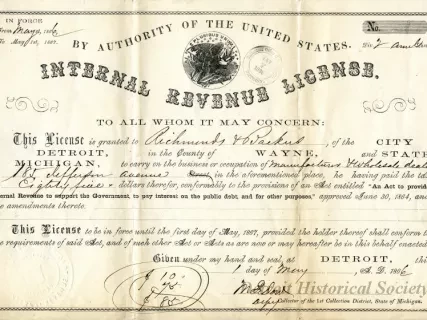 IN FORCE
From May 1, 1866
To May 1st, 1867.
No.
BY AUTHORITY OF THE UNITED STATES.
INTERNAL REVENUE LICENSE.
TO ALL WHOM IT MAY CONCERN:
This License is granted to Richmonds & Backus, of the CITY
DETROIT, in the County of WAYNE, and STATE
MICHIGAN, to carry on the business or occupation of manufacturers & wholesale deal
185 Jefferson avenue in the aforementioned place, he having paid the
Eighty five dollars therefor, conformably to the provisions of an Act entitled "An Act to provide
nternal Revenue to support the Government to pay interest on the public debt, and for other purposes," approved June 30, 1864, and
e amendments thereto.
This License to be in force until the first day of May, 1867, provided the holder thereof shall conform to
he requirements of said Act, and of such other Act or Acts as are now or may hereafter be in this behalf enacted
Given under my hand and seal, at DETROIT, this
1 day of May, A. D. 1866
$ 10
75
$ 85
Collector of the 1st Collection District, State of Michigan.
Historical Society